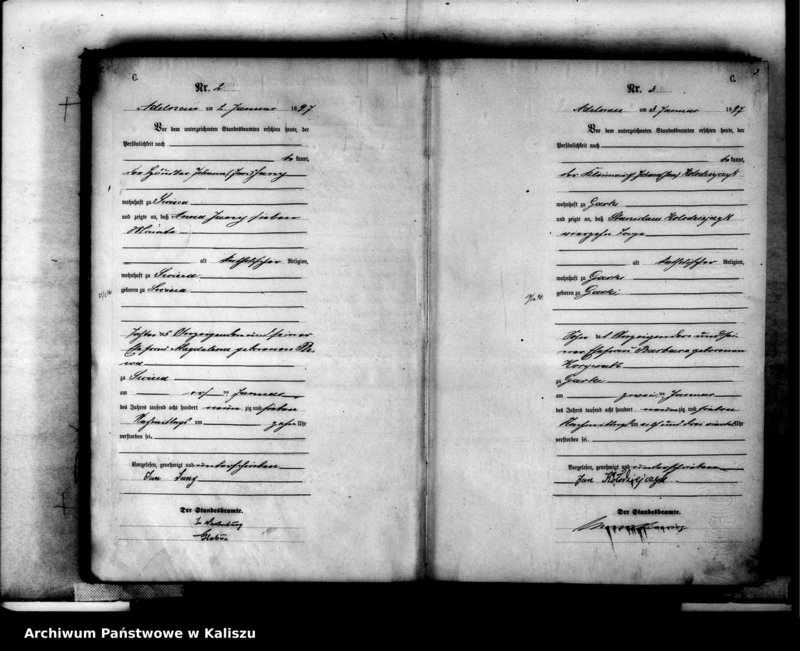 C.
Nr. 2
Adelnau am 2. Januar 1897
Vor dem unterzeichneten Standesbeamten erschien heute, der
Persönlichkeit nach
be kannt,
der Häusler Johann (Jan) Jung
wohnhaft zu Swieca
und zeigte an, daß Anna Jung sieben
Monate
alt katholischer Religion,
wohnhaft zu Swieca
geboren zu Swieca
Tochter des Anzeigenden und seiner
Ehefrau Magdalena geborenen
zu Swieca
am Januar
des Jahres tausend acht hundert neun zig und sieben
Nachmittags um zehn Uhr
verstorben sei.
Vorgelesen, genehmigt und unterschrieben
Jan Jung
Der Standesbeamte.
In Vertretung
C.
Nr. 3
Adelnau am 3. Januar 1897
Vor dem unterzeichneten Standesbeamten erschien heute, der
Persönlichkeit nach
be kannt,
der Kleinwirth Johann (Jan) Kolodziejczyk
wohnhaft zu Garki
und zeigte an, daß Stanislaus Kolodziejczyk
vierzehn Tage
alt katholischer Religion,
wohnhaft zu Garki
geboren zu Garki
Sohn des Anzeigenden und sei-
ner Ehefrau Barbara geborenen
zu Garki
am zwei ten Januar
des Jahres tausend acht hundert neun zig und sieben
Nachmittags um elf und drei viertel Uhr
verstorben sei.
Vorgelesen, genehmigt und unterschrieben
Jan Kołodziejczyk
Der Standesbeamte.
Archiwum Państwowe w Kaliszu